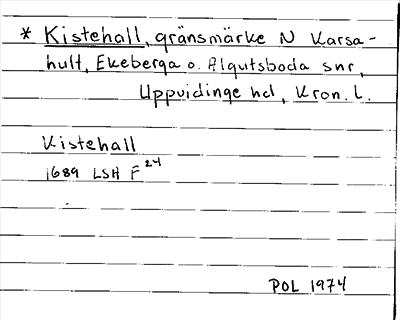 * Kistehall, gränsmärke N Karsa-
hult, Ekeberga o. Algutsboda snr,
Uppvidinge hd, Kron. l.
Kistehall
1689 LSH F 24
POL 1974